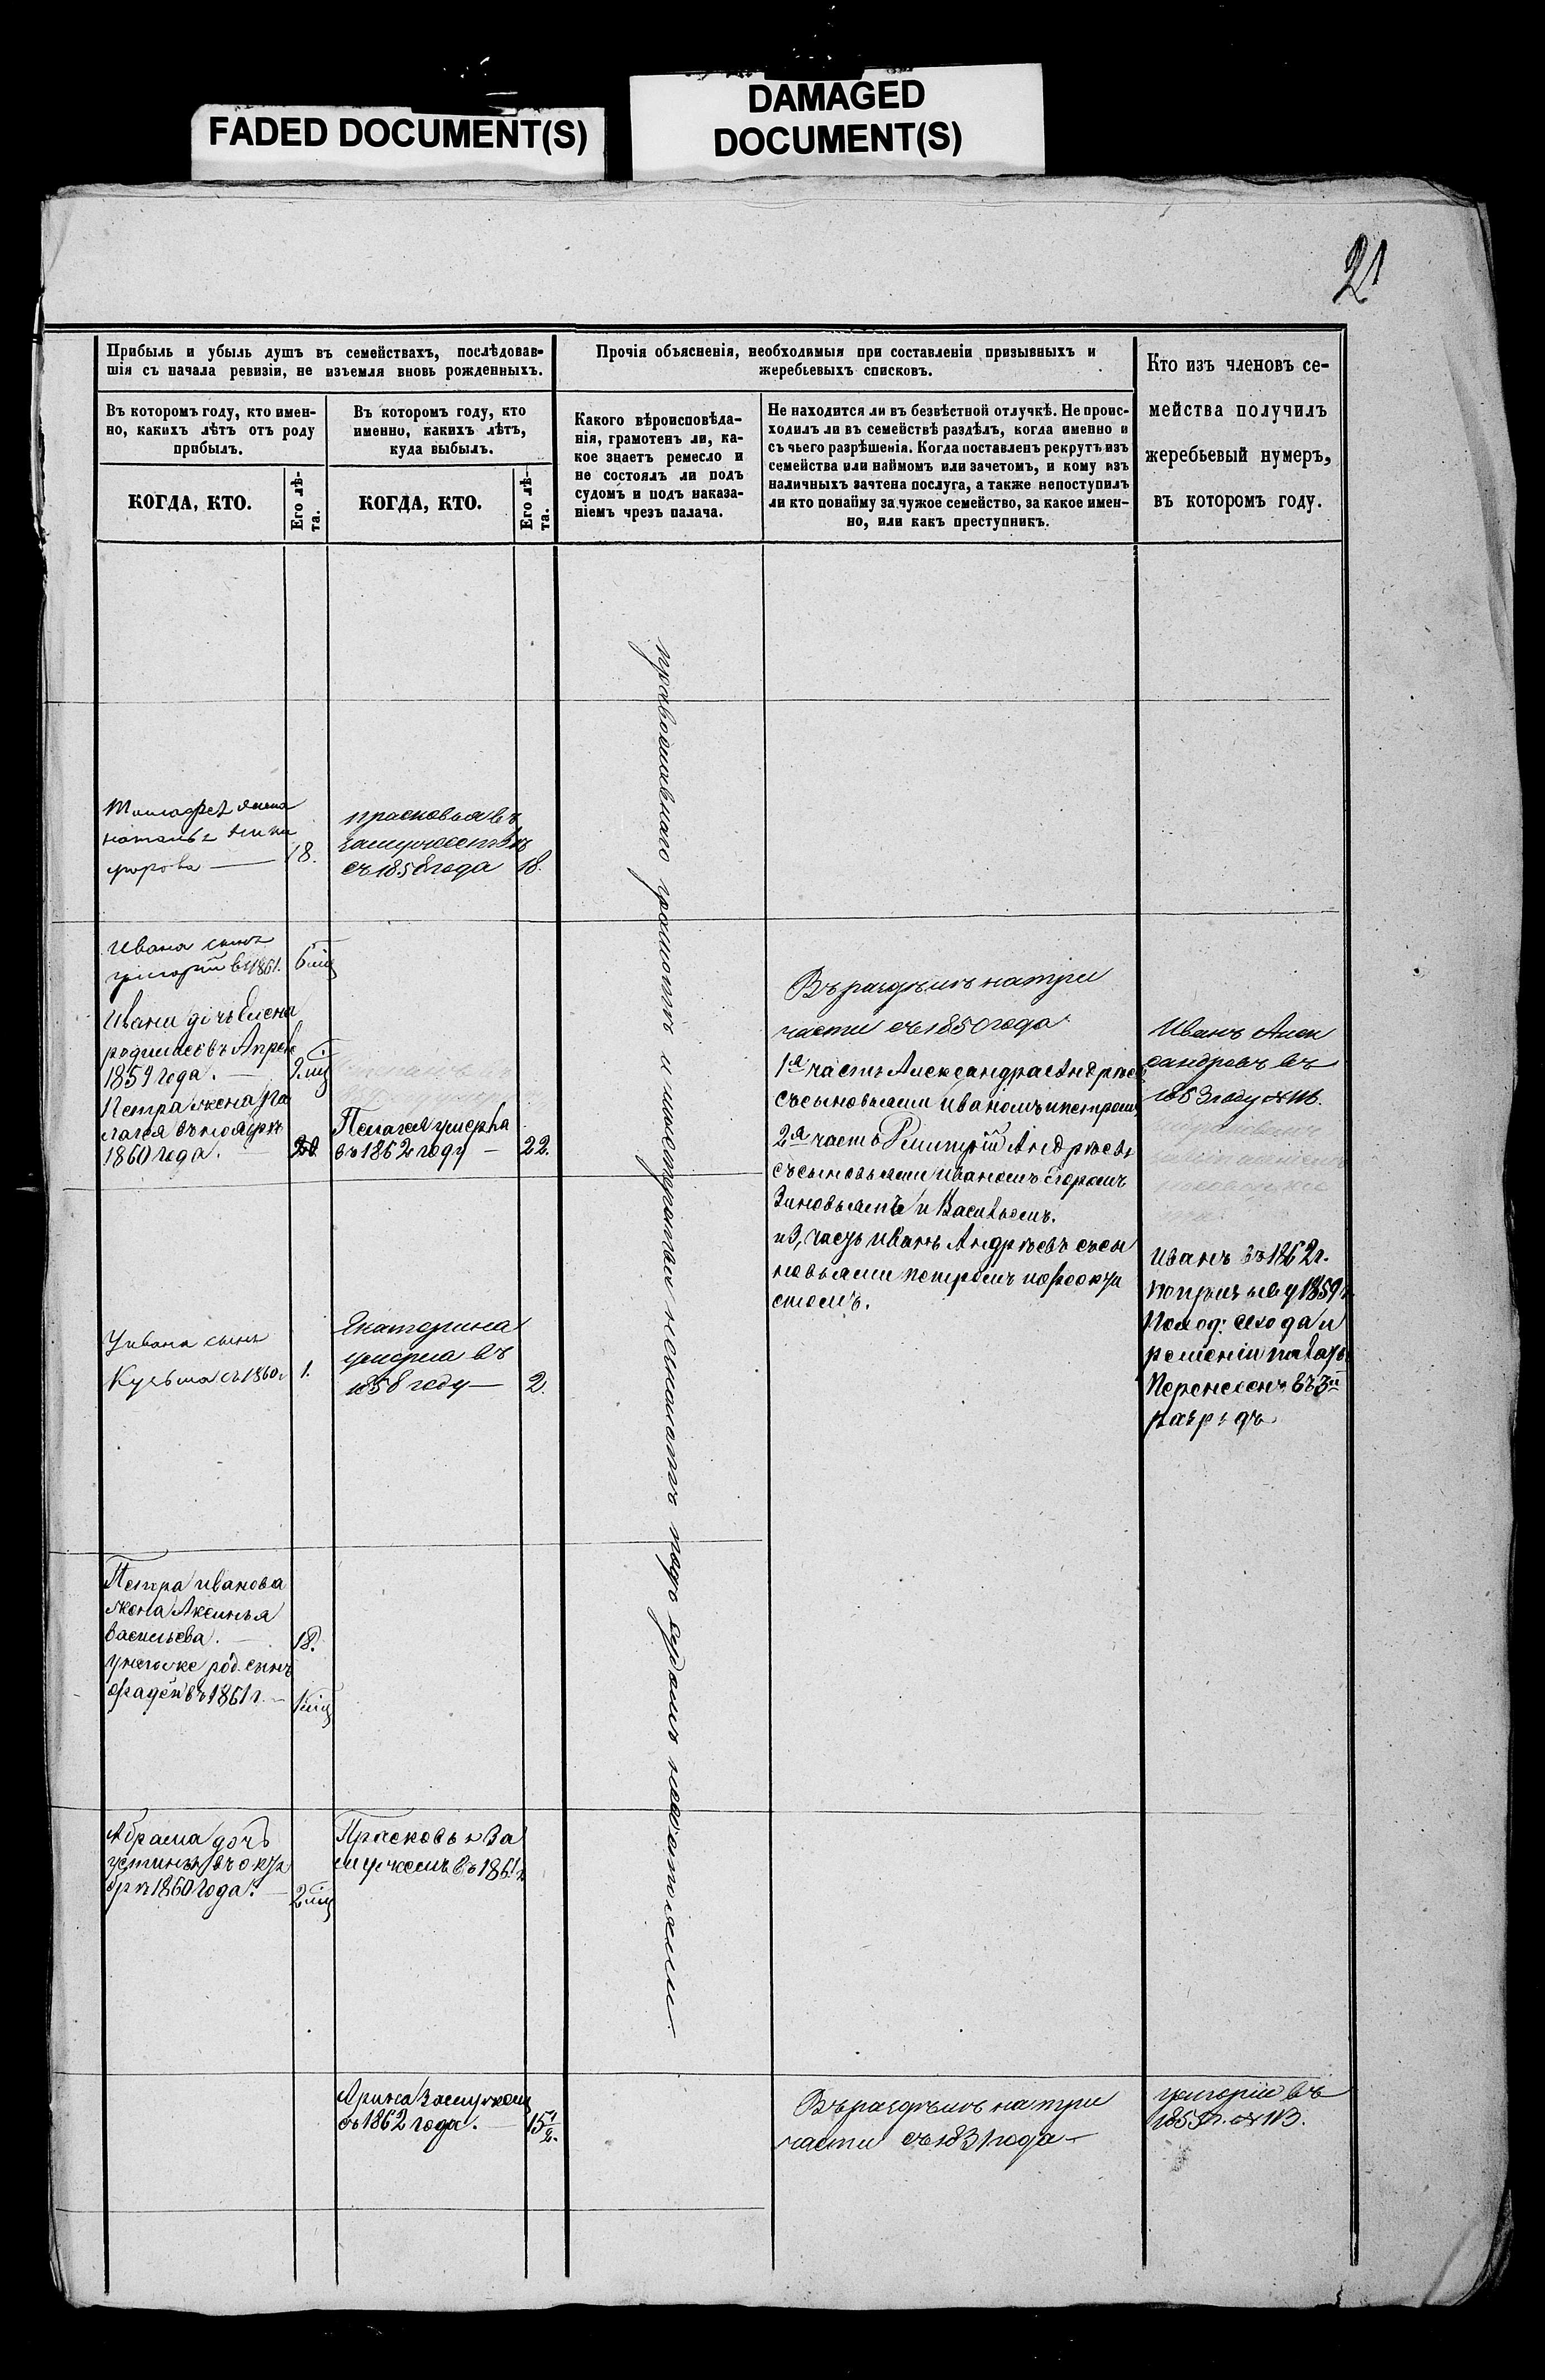 FADED DOCUMENT(S)
DAMAGED
DOCUMENT(S)
21
Прибыль и убыль душъ въ семействахъ, послѣдовав-
шія съ начала ревизіи, не изъемля вновь рожденныхъ.
Прочія объясненія, необходимыя при составленіи призывныхъ и
жеребьевыхъ списковъ.
Кто изъ членовъ се-
мейства получилъ
жеребьевый нумеръ,
въ которомъ году.
Въ которомъ году, кто имен-
но, какихъ лѣтъ отъ роду
прибылъ.
Въ которомъ году, кто
именно, какихъ лѣтъ,
куда выбылъ.
Какого вѣроисповѣда-
нія, грамотенъ ли, ка-
кое знаетъ ремесло и
не состоялъ ли подъ
судомъ и подъ наказа-
ніемъ чрезъ палача.
Не находится ли въ безвѣстной отлучкѣ. Не проис-
ходилъ ли въ семействѣ раздѣлъ, когда именно и
съ чьего разрѣшенія. Когда поставленъ рекрутъ изъ
семейства или наймомъ или зачетомъ, и кому изъ
наличныхъ зачтена послуга, а также непоступилъ
ли кто понайму за чужое семейство, за какое имен-
но, или какъ преступникъ.
КОГДА, КТО.
Его лѣ-
та.
КОГДА, КТО.
Его лѣ-
та.
жена
18.
прасковья въ
замужествѣ
съ 1858 года 18.
православнаго грамотѣ и подъ судомъ несостояли
Ивана сынъ
григорій въ 1861. 6 міц
Ивана дочь Елена
родилась въ Апреле
1859 года. 9 міц
Петра жена Па
лагея въ ноябрѣ
1860 года. 20.
Пелагея умерла
въ 1862 году 22.
Въ раздѣлѣ на три
части съ 1850 года
1я часть Александра Андреев
съ сыновьями иваномъ и петромъ
2я часть Димитрій Андреевъ
съ сыновьями иваномъ Егоромъ
Зиновьемъ и Васильемъ.
и 3, часть иванъ Андреевъ съ сы
новьями петромъ
Иванъ Алек
сандровъ въ
1863 году
иванъ въ 1862 г.
по призыву 1859 г.
схода и
решеніи палаты
Перенесенъ въ 3й
разрядъ
У ивана сынъ
Кузьма съ 1860 г 1.
Екатерина
умерла въ
1858 году 2.
Петра иванова
жена Аксинья
васильева. 18.
у него же род. сынъ
фадей въ 1861 г. міц
Абрама дочь
устинья въ октя
брѣ 1860 года. 2 міц
Прасковья За
мужемъ въ 1861 г
Арина Замужем
съ 1862 года. 15 1/2.
Въ раздѣлѣ на три
части съ 1831 года
григорій въ
1859 г.